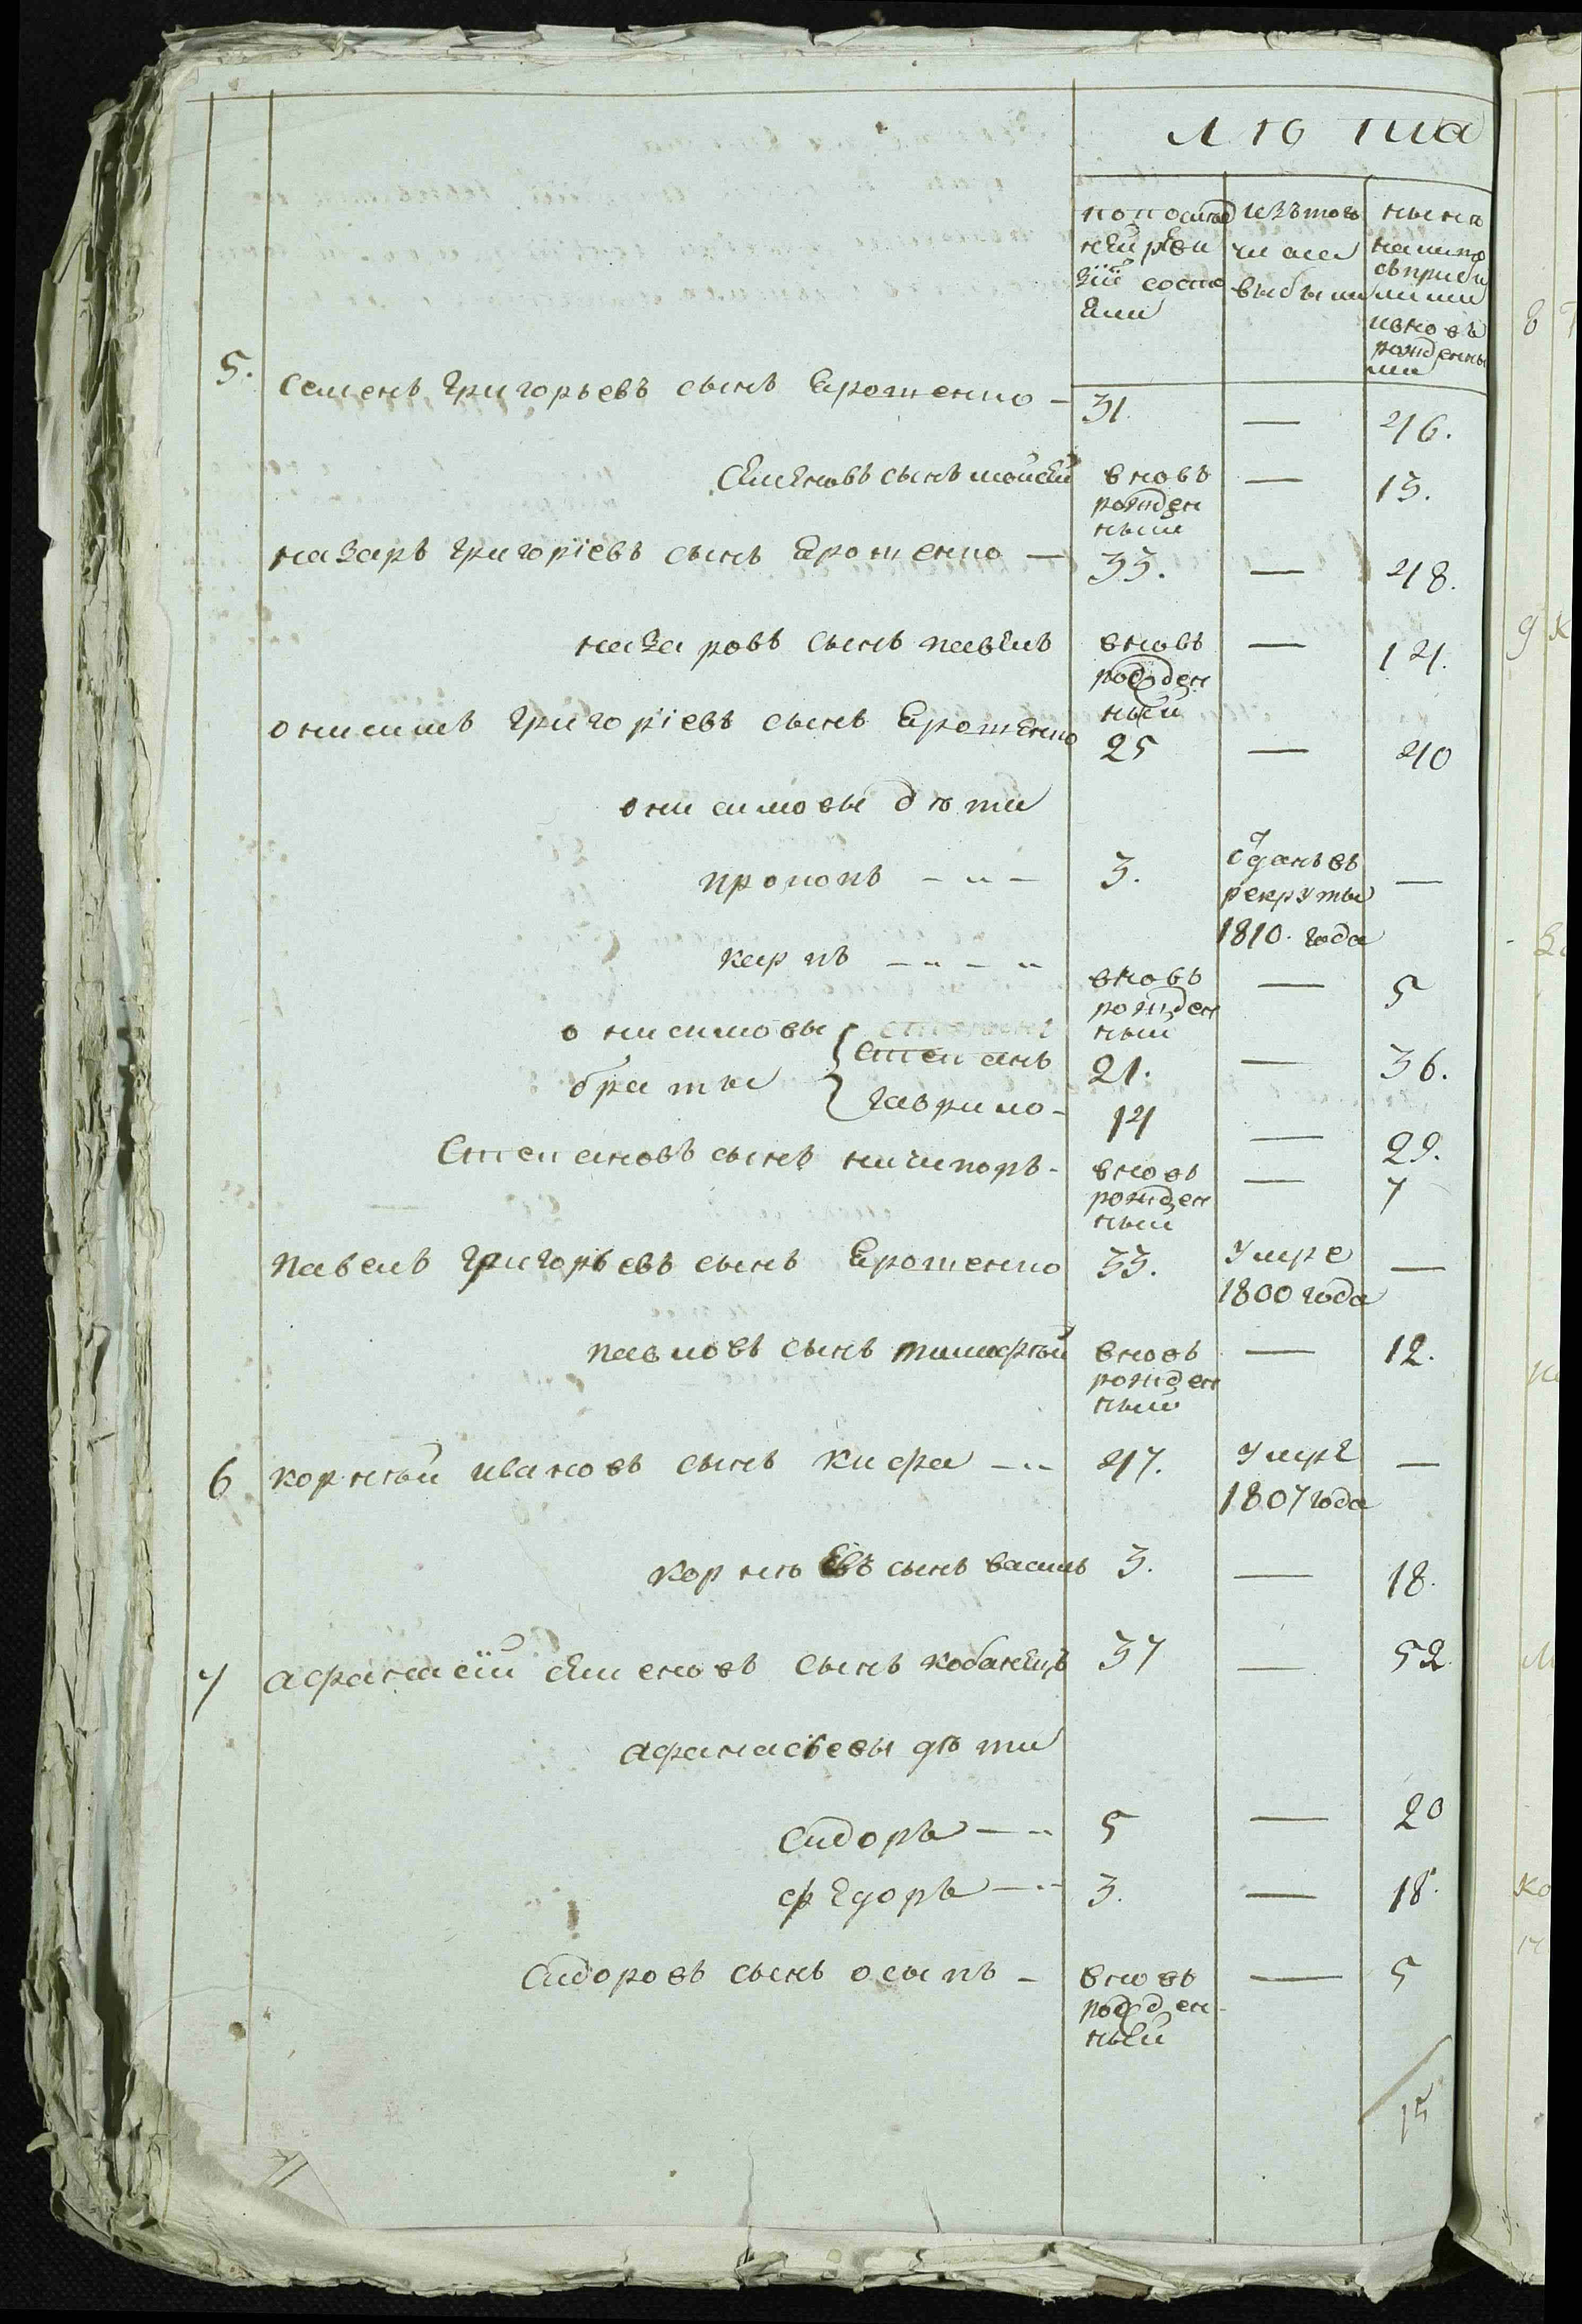 попослѣд
нѣй реви
зіи состо
яли
изътого
числа
выбыли
нынѣ
налицо
съприбы
лыми
ивновь
рожденны
ми
5. Семенъ Григорьевъ сынъ Ерошенко — 31. — 46.
Семеновъ сынъ мойсей вновь рожден ный — 13.
назаръ Григоріевъ сынъ Ерошенко — 33. — 48.
назаровъ сынъ павелъ вновь рожден ный — 14.
онисимъ Григоріевъ сынъ Ерошенко 25 — 40
онисимовы дѣти
прокопъ 3. сданъ въ рекруты 1810. года —
карпъ вновь рожден ный — 5
онисимовы братья
Степанъ 21. — 36.
Гаврило 14 — 29.
Степановъ сынъ ничипоръ вновь рожден ный — 7
павелъ Григорьевъ сынъ Ерошенко 33. умре 1800 года —
павловъ сынъ тимофѣй вновь рожден ный — 12.
6 корнѣй ивановъ сынъ Кифа 47. умре 1807 года —
корнѣевъ сынъ василь 3. — 18.
7 афанасій Семеновъ сынъ кобанецъ 37 — 52
афанасьевы дѣти
Сидоръ — 5 — 20
федоръ — 3. — 18.
Сидоровъ сынъ осыпъ — вновь рожден ный — 5
15